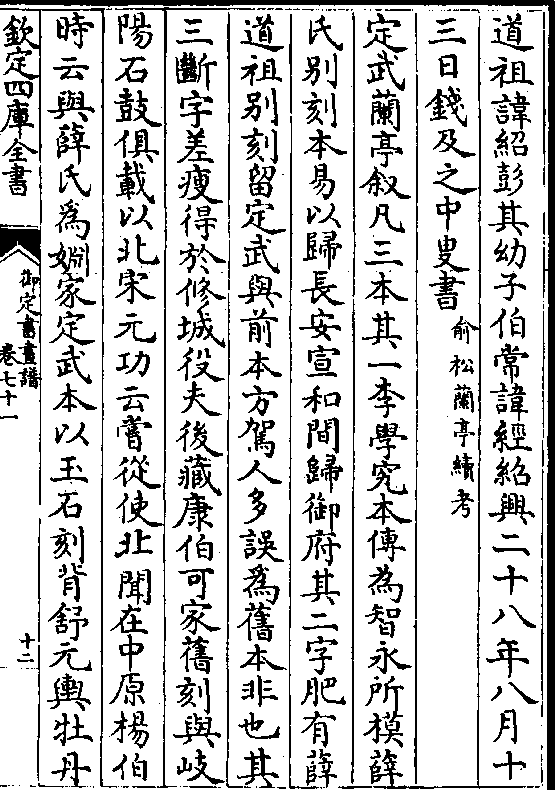 道祖諱紹彭其幼子伯常諱經紹興二十八年八月十
三日錢及之中叟書
俞松蘭亭續考
定武蘭亭叙凡三本其一李學究本傳為智永所模薛
氏别刻本易以歸長安宣和間歸御府其二字肥有薛
道祖别刻留定武與前本方駕人多誤為舊本非也其
三斷字差瘦得於修城役夫後藏康伯可家舊刻與岐
陽石鼓俱載以北宋元功云嘗從使北聞在中原楊伯
時云與薛氏為婣家定武本以玉石刻背舒元輿牡丹
欽定四庫全書
御定書畫譜
卷七十一
十二